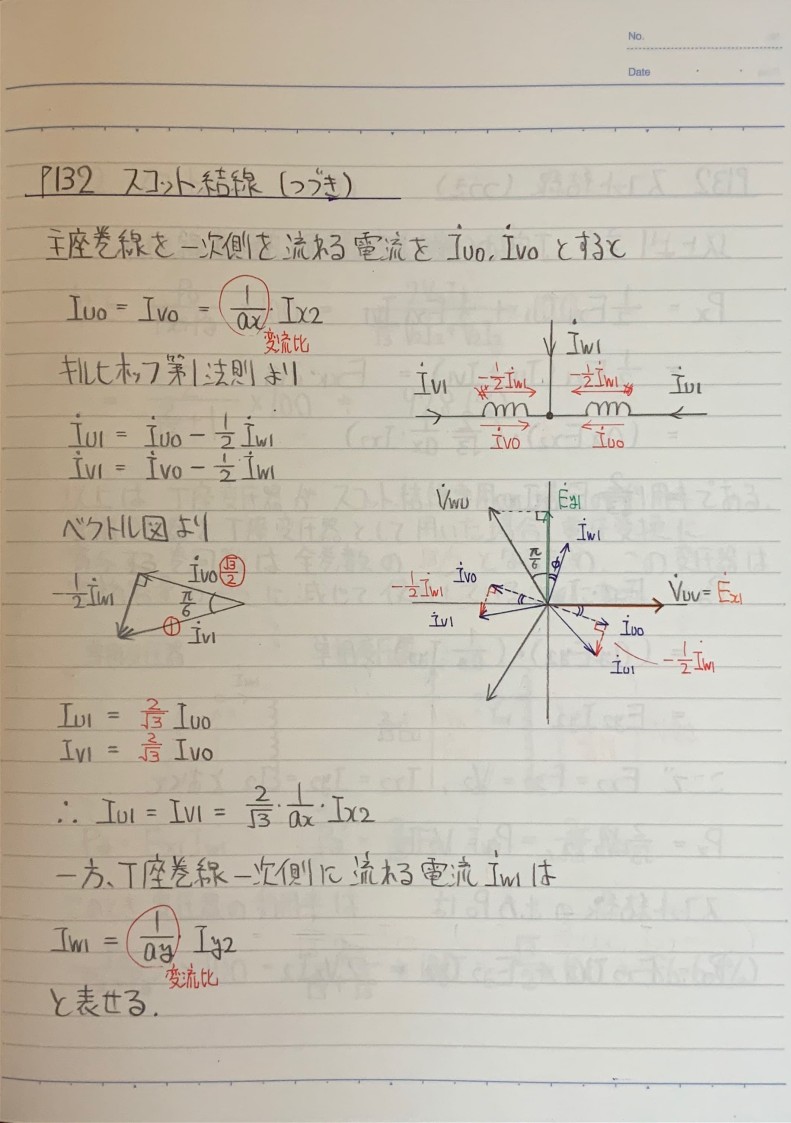 No.
Date
P132 スコット結線 (つづき)
主座巻線を一次側を流れる電流を İU0, İV0 とすると
IU0 = IV0 = 1/ax · Ix2
変流比
キルヒホッフ第1法則より
İU1 = İU0 - 1/2 İW1
İV1 = İV0 - 1/2 İW1
İW1
İV1
-1/2 İW1
-1/2 İW1
İU1
İV0
İU0
ベクトル図より
-1/2 İW1
İV0 √3/2
π/6
1
İV1
V̇WU
Ėy1
İW1
π/6
φ
-1/2 İW1
İV0
İV1
V̇UV = Ėx1
İU0
İU1
-1/2 İW1
IU1 = 2/√3 IU0
IV1 = 2/√3 IV0
∴ IU1 = IV1 = 2/√3 · 1/ax · Ix2
一方、T座巻線一次側に流れる電流 İW1 は
IW1 = 1/ay Iy2
変流比
と表せる.